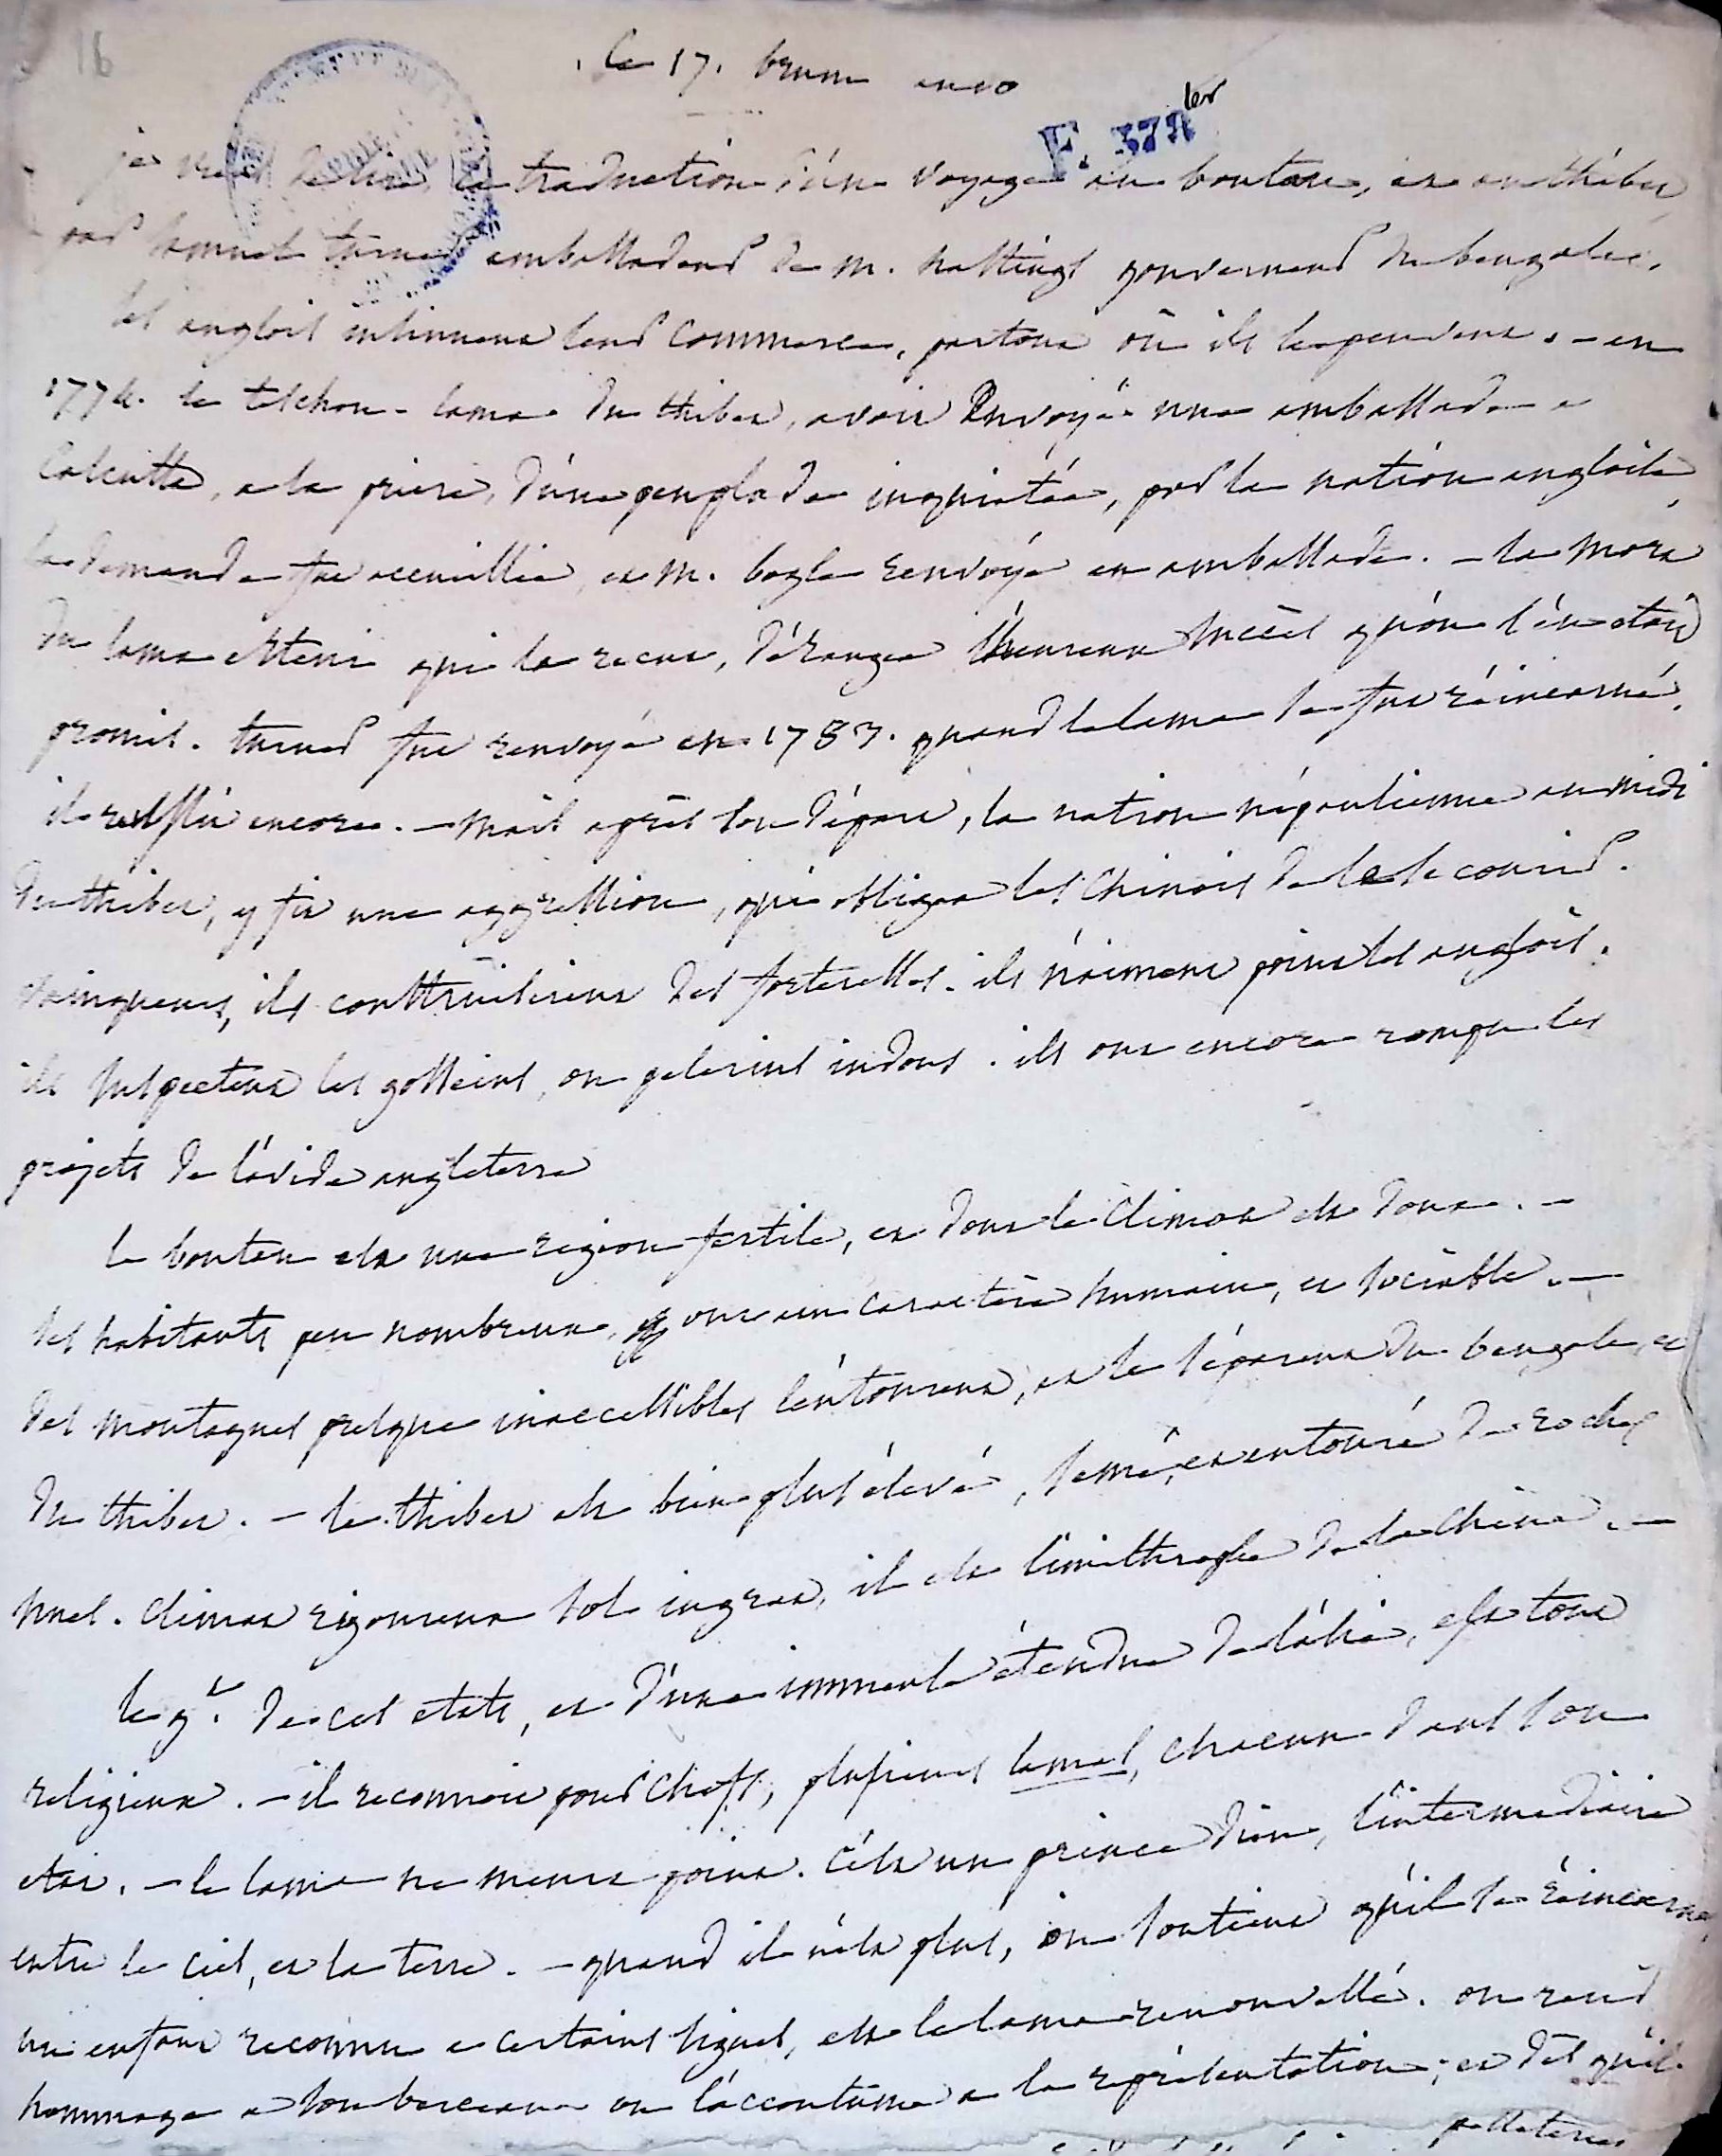 16
le 17. brum an 10
F. 37 ter
je viens de lire la traduction d'un voyage au boutan, et au thibet
par samuel turner ambassadeur de m. hastings gouverneur du bengale.
les anglois insinuent leur commerce, partout où ils le peuvent. - en
1774. le teschou-lama du thibet, avoit envoyé une ambassade a
Calcutta, a la priere, d'une peuplade inquiétée, par la nation angloise,
la demande fut accueillie, et m. bogle renvoyé en ambassade. - la mort
du lama qui le recut, dérangea l'heureux succès qu'on s'en etoit
promis. turner fut renvoyé en 1783. quand le lama se fut réincarné.
il réussit encore. - mais après son départ, la nation népaulienne au midi
du thibet, y fit une aggression, qui obligea les Chinois de le secourir.
vainqueurs, ils construisirent des forteresses. ils n'aiment point les anglois.
ils suspectent les gosseins, ou pelerins indous. ils ont encore rompu les
projets de l'avide angleterre
le boutan est une region fertile, et dont le climat est doux. -
ses habitants peu nombreux, ont un caractère humain, et sociable. -
des montagnes presque inaccessibles l'entourent, et le séparent du bengale, et
du thibet. - le thibet est bien plus élevé, semé, et entouré de roches
nues. climat rigoureux sol ingrat, il est limithrophe de la Chine. -
le gt. de ces etats, et d'une immense étendue de l'asie, est tout
religieux. - il reconnoit pour Chefs, plusieurs lamas, chacun dans son
etat. - le lama ne meurt point. C'est un prince dieu, l'intermediaire
entre le ciel, et la terre. - quand il n'est plus, on soutient qu'il se réincarne,
un enfant reconnu a certains signes, est le lama renouvellé. on rend
hommage a son berceau on l'accoutume a la représentation; et dès qu'il